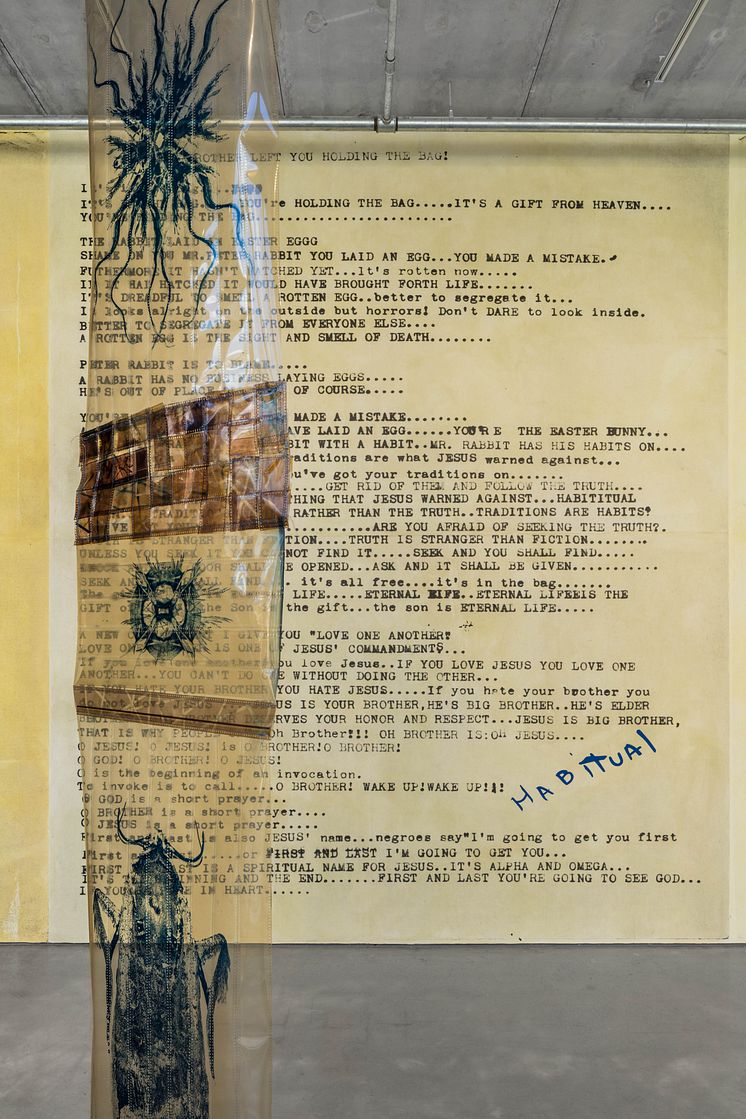 BROTHER LEFT YOU HOLDING THE BAG!
YOU're HOLDING THE BAG.....IT'S A GIFT FROM HEAVEN....
YOU'RE HOLDING THE BAG.........................
THE RABBIT LAID AN EASTER EGGG
SHAME ON YOU MR.PETER RABBIT YOU LAID AN EGG...YOU MADE A MISTAKE..
FUTHERMORE IT HASN'T HATCHED YET...It's rotten now.....
IF IT HAD HATCHED IT WOULD HAVE BROUGHT FORTH LIFE.......
IT'S DREADFUL TO SMELL A ROTTEN EGG..better to segregate it...
It looks alright on the outside but horrors! Don't DARE to look inside.
BETTER TO SEGREGATE IT FROM EVERYONE ELSE....
A ROTTEN EGG IS THE SIGHT AND SMELL OF DEATH........
PETER RABBIT IS TO BLAME.....
A RABBIT HAS NO BUSINESS LAYING EGGS.....
HE'S OUT OF PLACE OF COURSE.....
YOU'RE MADE A MISTAKE........
HAVE LAID AN EGG......YOU'RE THE EASTER BUNNY...
RABBIT WITH A HABIT..MR. RABBIT HAS HIS HABITS ON....
traditions are what JESUS warned against...
you've got your traditions on.......
....GET RID OF THEM AND FOLLOW THE TRUTH....
THING THAT JESUS WARNED AGAINST...HABITITUAL
TRADITION RATHER THAN THE TRUTH..TRADITIONS ARE HABITS?
...........ARE YOU AFRAID OF SEEKING THE TRUTH?.
IS STRANGER THAN FICTION....TRUTH IS STRANGER THAN FICTION........
UNLESS YOU SEEK IT YOU CANNOT FIND IT.....SEEK AND YOU SHALL FIND.....
KNOCK DOOR SHALL BE OPENED...ASK AND IT SHALL BE GIVEN...........
SEEK AND SHALL FIND... it's all free....it's in the bag.......
The LIFE.....ETERNAL LIFE..ETERNAL LIFEEIS THE
GIFT of the Son is the gift...the son is ETERNAL LIFE.....
A NEW I GIVE YOU "LOVE ONE ANOTHER"
LOVE ONE IS ONE OF JESUS' COMMANDMENTS...
If you love one another you love Jesus..IF YOU LOVE JESUS YOU LOVE ONE
ANOTHER...YOU CAN'T DO ONE WITHOUT DOING THE OTHER...
IF YOU HATE YOUR BROTHER YOU HATE JESUS.....If you hate your brother you
do not love JESUS JESUS IS YOUR BROTHER,HE'S BIG BROTHER..HE'S ELDER
BROTHER DESERVES YOUR HONOR AND RESPECT...JESUS IS BIG BROTHER,
THAT IS WHY PEOPLE Oh Brother!!! OH BROTHER IS:Oh JESUS....
O JESUS! O JESUS! is O BROTHER!O BROTHER!
O GOD! O BROTHER! O JESUS!
O is the beginning of an invocation.
To invoke is to call.....O BROTHER! WAKE UP!WAKE UP!!!
O GOD is a short prayer...
O BROTHER is a short prayer....
O JESUS is a short prayer.....
First and last is also JESUS' name...negroes say"I'm going to get you first
first or FIRST AND LAST I'M GOING TO GET YOU...
FIRST LAST IS A SPIRITUAL NAME FOR JESUS..IT'S ALPHA AND OMEGA...
IT'S THE BEGINNING AND THE END.......FIRST AND LAST YOU'RE GOING TO SEE GOD...
IF YOU'RE PURE IN HEART......
HABITUAl